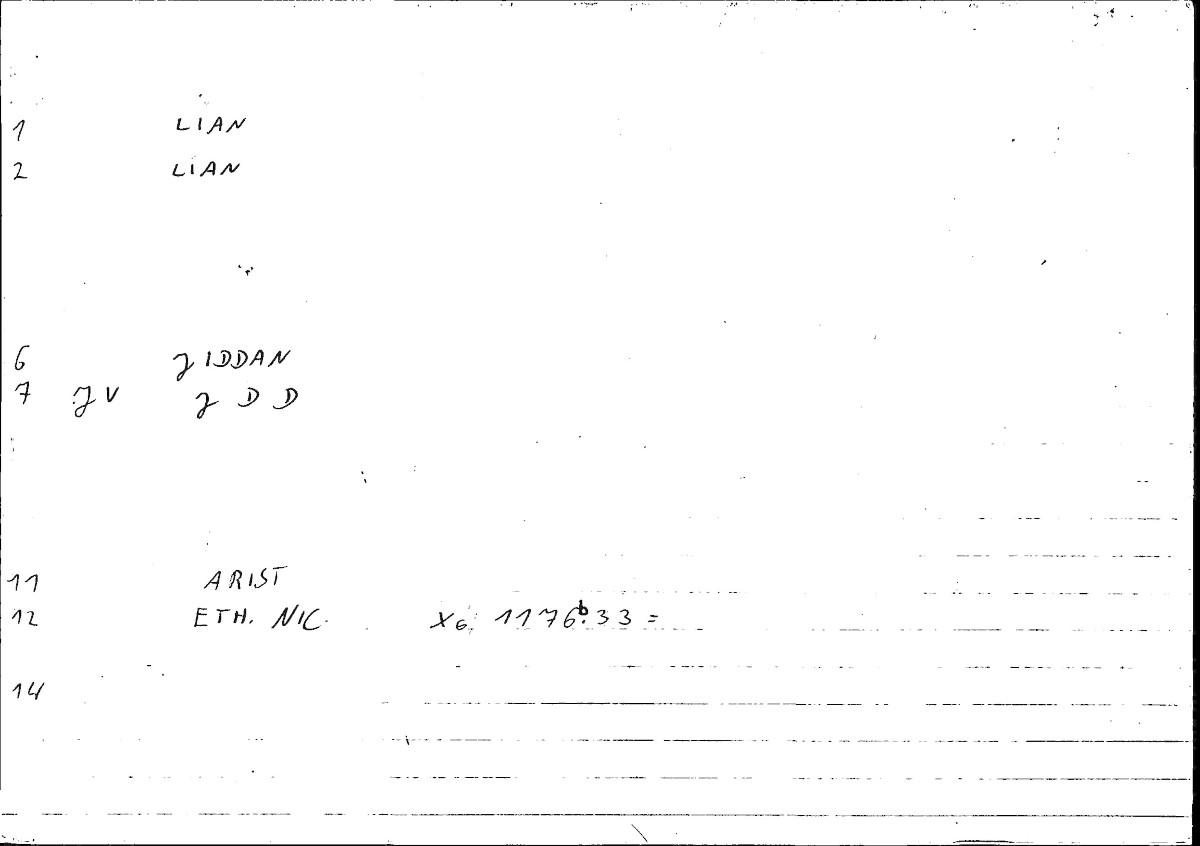 1 LIAN
2 LIAN
6 JIDDAN
7 JV J D D
11 ARIST
12 ETH. NIC. X6, 1176b33 =
14